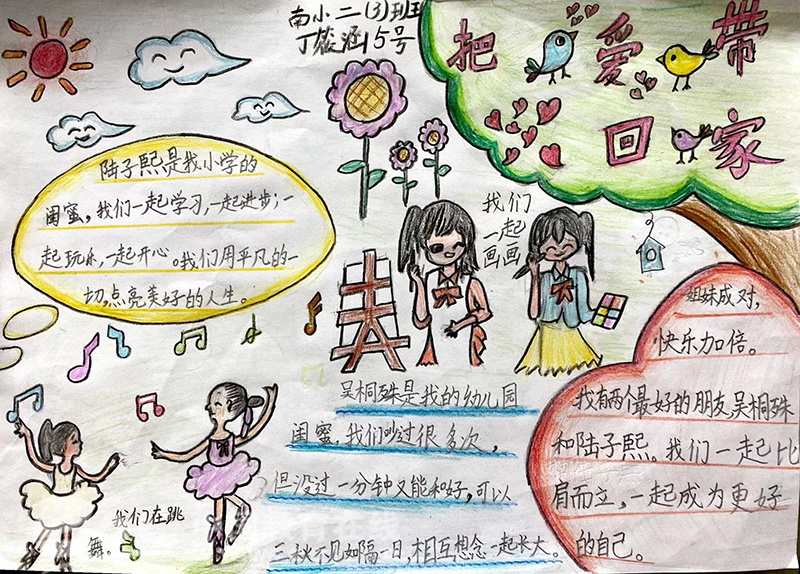 南小二(3)班
丁燚涵15号
把爱带
回家
陆子熙是我小学的
闺蜜，我们一起学习，一起进步；一
起玩乐，一起开心。我们用平凡的一
切，点亮美好的人生。
我们
一起
画画
姐妹成对，
快乐加倍。
我有两个最好的朋友吴桐殊
和陆子熙。我们一起比
肩而立，一起成为更好
的自己。
吴桐殊是我的幼儿园
闺蜜，我们吵过很多次，
但没过一分钟又能和好，可以
三秋不见如隔一日，相互想念一起长大。
我们在跳
舞。